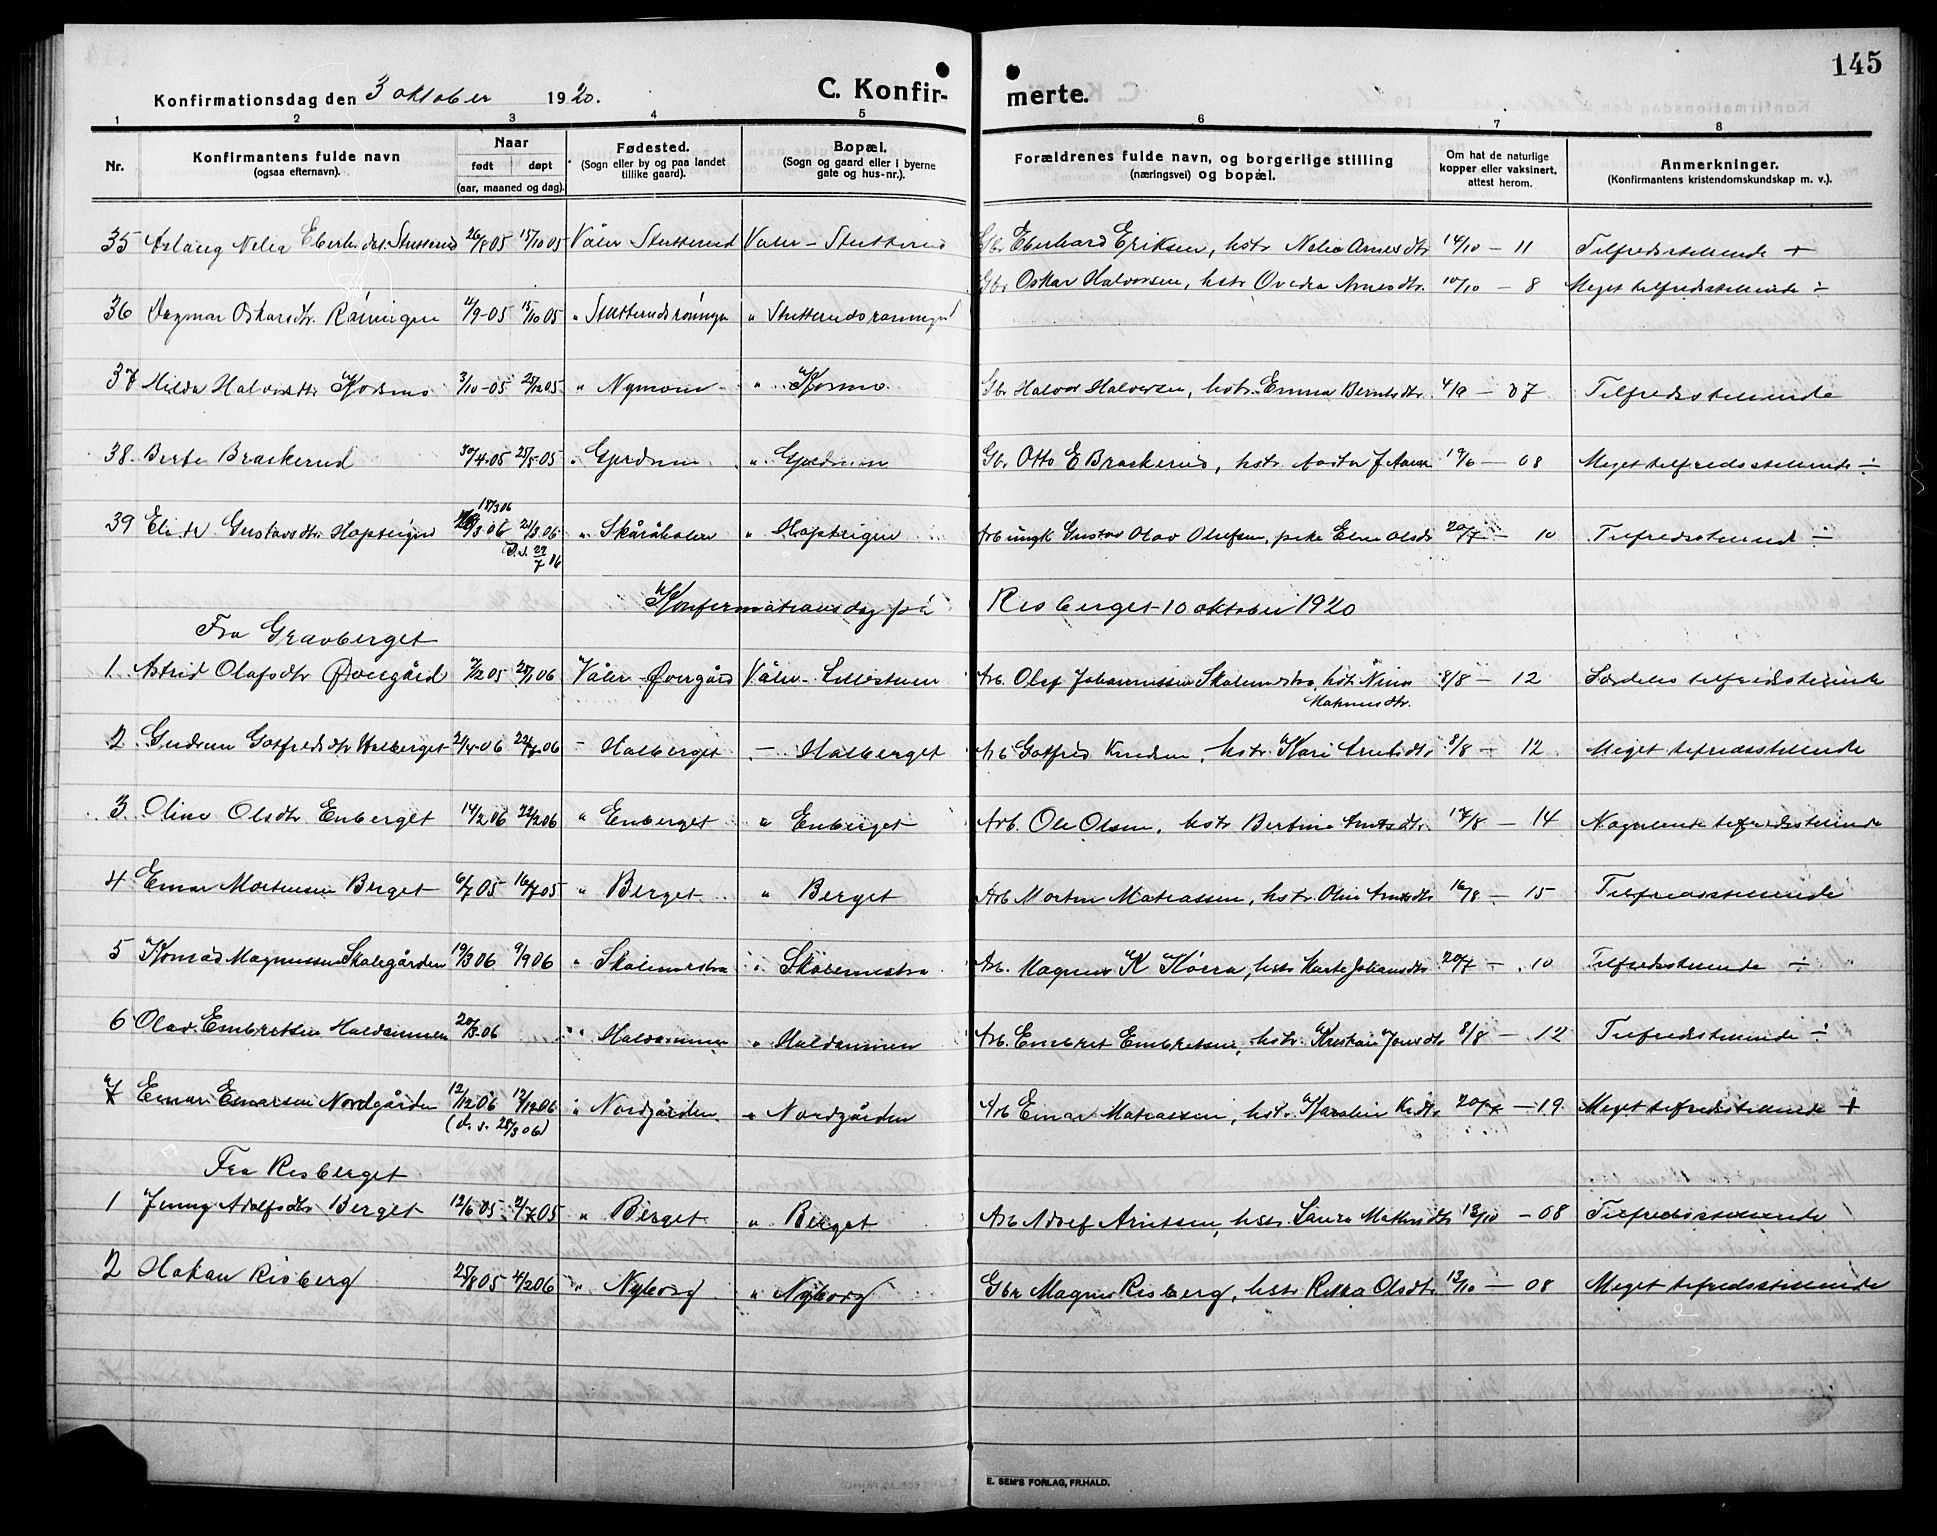 145
Konfirmationsdag den 3 oktober 1920. C. Konfir-merte.
1 2 3 4 5 6 7 8
Nr. Konfirmantens fulde navn (ogsaa efternavn). Naar født døpt (aar, maaned og dag). Fødested. (Sogn eller by og paa landet tillike gaard). Bopæl. (Sogn og gaard eller i byerne gate og hus-nr.). Forældrenes fulde navn, og borgerlige stilling (næringsvei) og bopæl. Om hat de naturlige kopper eller vaksinert, attest herom. Anmerkninger. (Konfirmantens kristendomskundskap m. v.).
35 Aslaug Nelia Eberh.dtr. Stutterud 26/8 05 15/10 05 Våler Stutterud Våler - Stutterud Gbr. Eberhard Eriksen, hstr. Nelia Arnesdtr. 14/10 - 11 Tilfredsstillende +
36 Dagmar Oskarsdtr. /9-05 15/10 05 " " Gbr. Oskar Halvorsen, hstr. Ovedia Arnesdtr. 10/10 - 8 Meget tilfredsstillende ÷
37 Milda Halvorsdtr. Kjosmo 3/10-05 25/12 05. " Nymoen " Kjosmo. Gbr Halvor Halvorsen, hstr. Emma Berntsdtr. 4/9 - 07 Tilfredsstillende
38. Berte Braskerud 30/4-05 25/5-05 " Gjerdrum ". Gjerdrum Gbr. Otto E Braskerud, hstr. 19/6 - 08 Meget tilfredsstillende ÷
39 Gustavsdtr. 18/3 06 /3 06 25/3 06. (d.s. 29/7 06 " Skåråholen " Arb. ungk. Gustav Olav Olufsen, pike 20/7 - 10 Tilfredsstillende ÷
Konfirmationsdag på Risberget 10 oktober 1920
Fra Gravberget
1. Astrid Olafsdtr Øvergård /12 05 /1 06 Våler Øvergård Våler - Lillestuen Arb. Olof Johannessen, hstr. Nina Matheusdtr. 8/8 - 12 Særdeles tilfredsstillende
2. Gudrun Gotfredsdtr Halberget 2/4-06 22/7-06 - Halberget - Halberget Arb Gotfred Knudsen, hstr. Kari Arntsdtr 8/8 - 12 Meget tilfredsstillende
3. Oline Olsdtr Enberget 14/2 06 22/2 06 " Enberget " Enberget Arb. Ole Olsen, hstr Bertine Arntsdtr. 17/8 - 14 Nogenlunde tilfredsstillende
4 Einar Mortensen Berget 6/7 05 16/7 05 " Berget " Berget Arb Morten Matiassen, hstr. Oline Arntsdtr 16/8 - 15 Tilfredsstillende
5 Konrad Magnussen Skalegården 19/3 06 9/9 06 " " Arb. Magnus K hstr Marte Johansdtr 20/7 - 10 Tilfredsstillende ÷
6 Olav Embretsen Haldammen 20/3-06 " Haldammen " Haldammen Arb. Embret Embretsen, hstr. Kristine Jensdtr 8/8 - 12 Tilfredsstillende ÷
7 Einar Einarsen Nordgården 12/12 06 17/12 06 (d.s. 25/3 06) " Nordgården. " Nordgården Arb Einar Matiassen, hstr. Karoline 20/7 - 19 Meget tilfredsstillende +
Fra Risberget
1 Jenny Adolfsdtr Berget 12/6 05. 2/7 05 " Berget " Berget Arb Adolf Arntsen, hstr. Laura 13/10 - 08 Tilfredsstillende
2 Hakan Risberg 25/8 05 4/2 06 " Nyborg " Nyborg Gbr Magnus Risberg, hstr Rikka Olsdtr. 13/10 - 08 Meget tilfredsstillende
E. SEM'S FORLAG, FR.HALD.